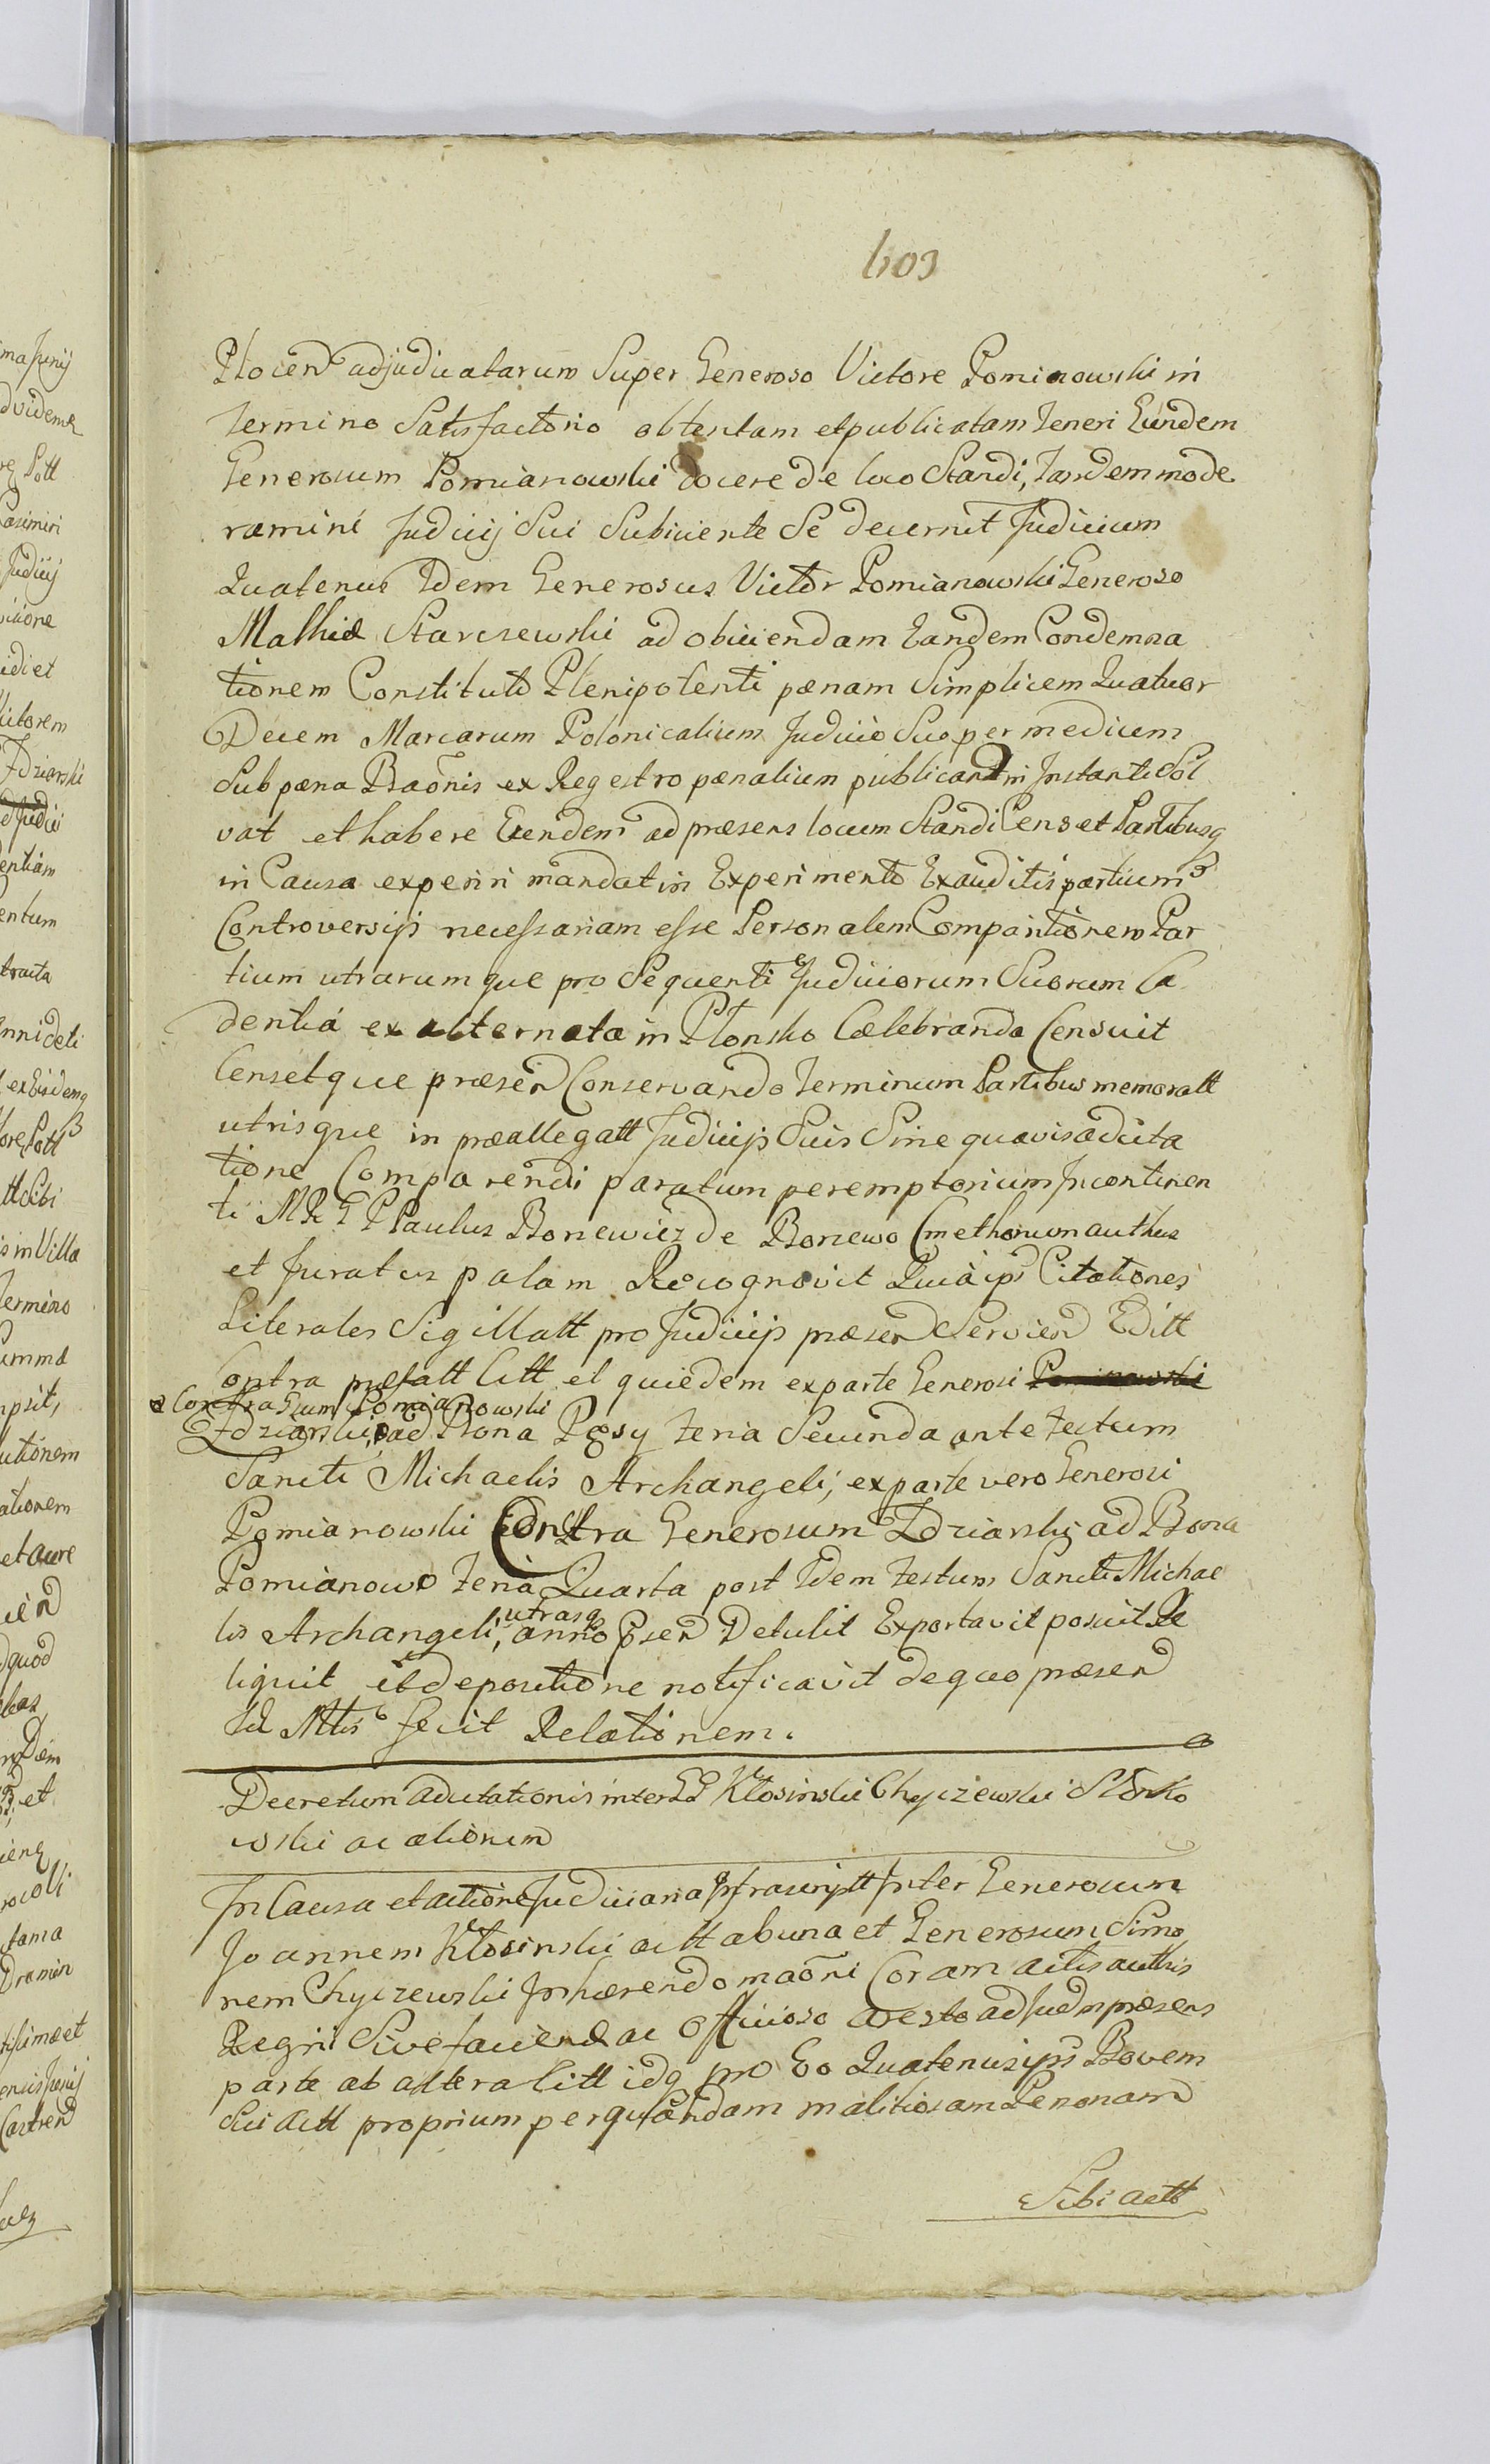 603
Plocen adjudicatarum Super Generoso Victore Pomianowski in
Termino Satisfactorio obtentam et publicatam Teneri Eundem
Generosum Pomianowski docere de loco Standi, Tandem mode
ramini Judicij Sui Subiiciente Se decernit Judicium
Quatenus Idem Generosus Victor Pomianowski Generoso
Mathiæ Starczewski ad obiiciendam Eandem Condemna
tionem Constituto Plenipotenti pænam Simplicem Quatuor
Decem Marcarum Polonicalium Judicio Suo per medium
Sub pæna Baonis ex Regestro pænalium publicand in Instanti Sol
vat et habere Eundem ad præsens locum Standi Cens et Partibusq
in Causa experiri mandat in Experimento Exauditis partium
Controversijs necessariam esse Personalem Comparitionem Par
tium utrarumque pro Sequenti Judiciorum Suorum Ca
dentia ex alternata in Płonsko Cælebranda Censuit
Censetque præsen Conservando Terminum Partibus memoratt
utrisque in præallegatt Judicijs Suis Sine quavis adcita
tione Comparendi paratum peremptorium Incontinen
ti MRGP Paulus Boniewicz de Boniewo Cmethonum authus
et Juratus palam Recognovit Quia ips Citationes
Literales Sigillatt pro Judicijs præsen Servien Editt
Contra præfatt Citt et quidem ex parte Generosi Pominowski
Contra Gsum Pomianowski
Zdziarski, ad Bona Pæsy feria Secunda ante festum
Sancti Michaelis Archangeli, ex parte vero Generosi
Pomianowski Contra Generosum Zdziarski ad Bona
Pomianowo feria Quarta post Idem festum Sancti Michae
lis Archangeli, utrasq anno Psen Detulit Exportavit posuit Re
liquit et depositione notificavit de quo præsen
Id Mtis fecit Relationem.
Decretum adcitationis inter GG Kłosinski Chyczewski Słonko
wski ac alionum
In Causa et actione Judiciaria Infrascriptt Inter Generosum
Joannem Kłosinski actt ab una et Generosum Simo
nem Chyczewski Inhærendo maoni Coram actis authis
Regni Sive faciend ac officioso aresto ad Judm præsens
parte ab altera Citt idq pro Eo Quatenus ips Bovem
Sui actt proprium per quandam malitiosam Personam
Sibi actt